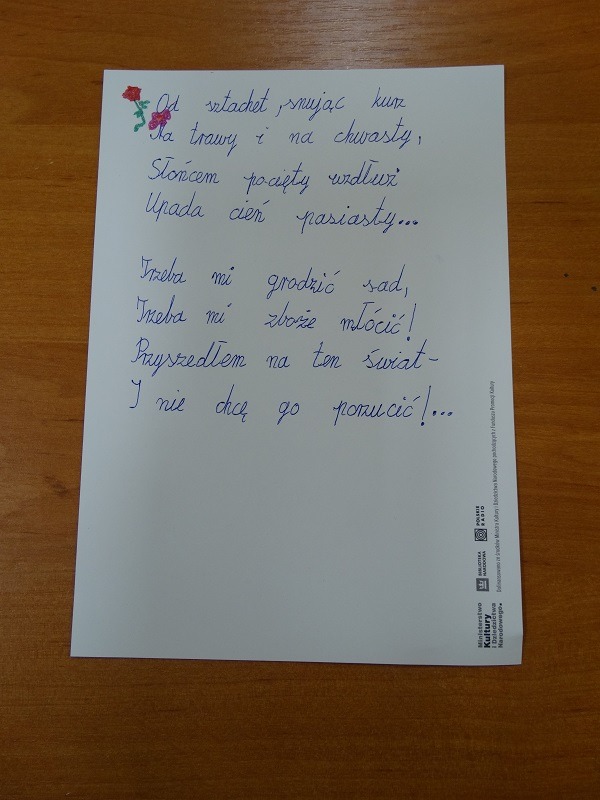 Od sztachet, snując kurz
Na trawy i na chwasty,
Słońcem pocięty wzdłuż
Upada cień pasiasty...
Trzeba mi grodzić sad,
Trzeba mi zboże młócić!
Przyszedłem na ten świat-
I nie chcę go porzucić!...
Ministerstwo
Kultury
i Dziedzictwa
Narodowego
BIBLIOTEKA
NARODOWA
POLSKIE
RADIO
Dofinansowano ze środków Ministra Kultury i Dziedzictwa Narodowego pochodzących z Funduszu Promocji Kultury